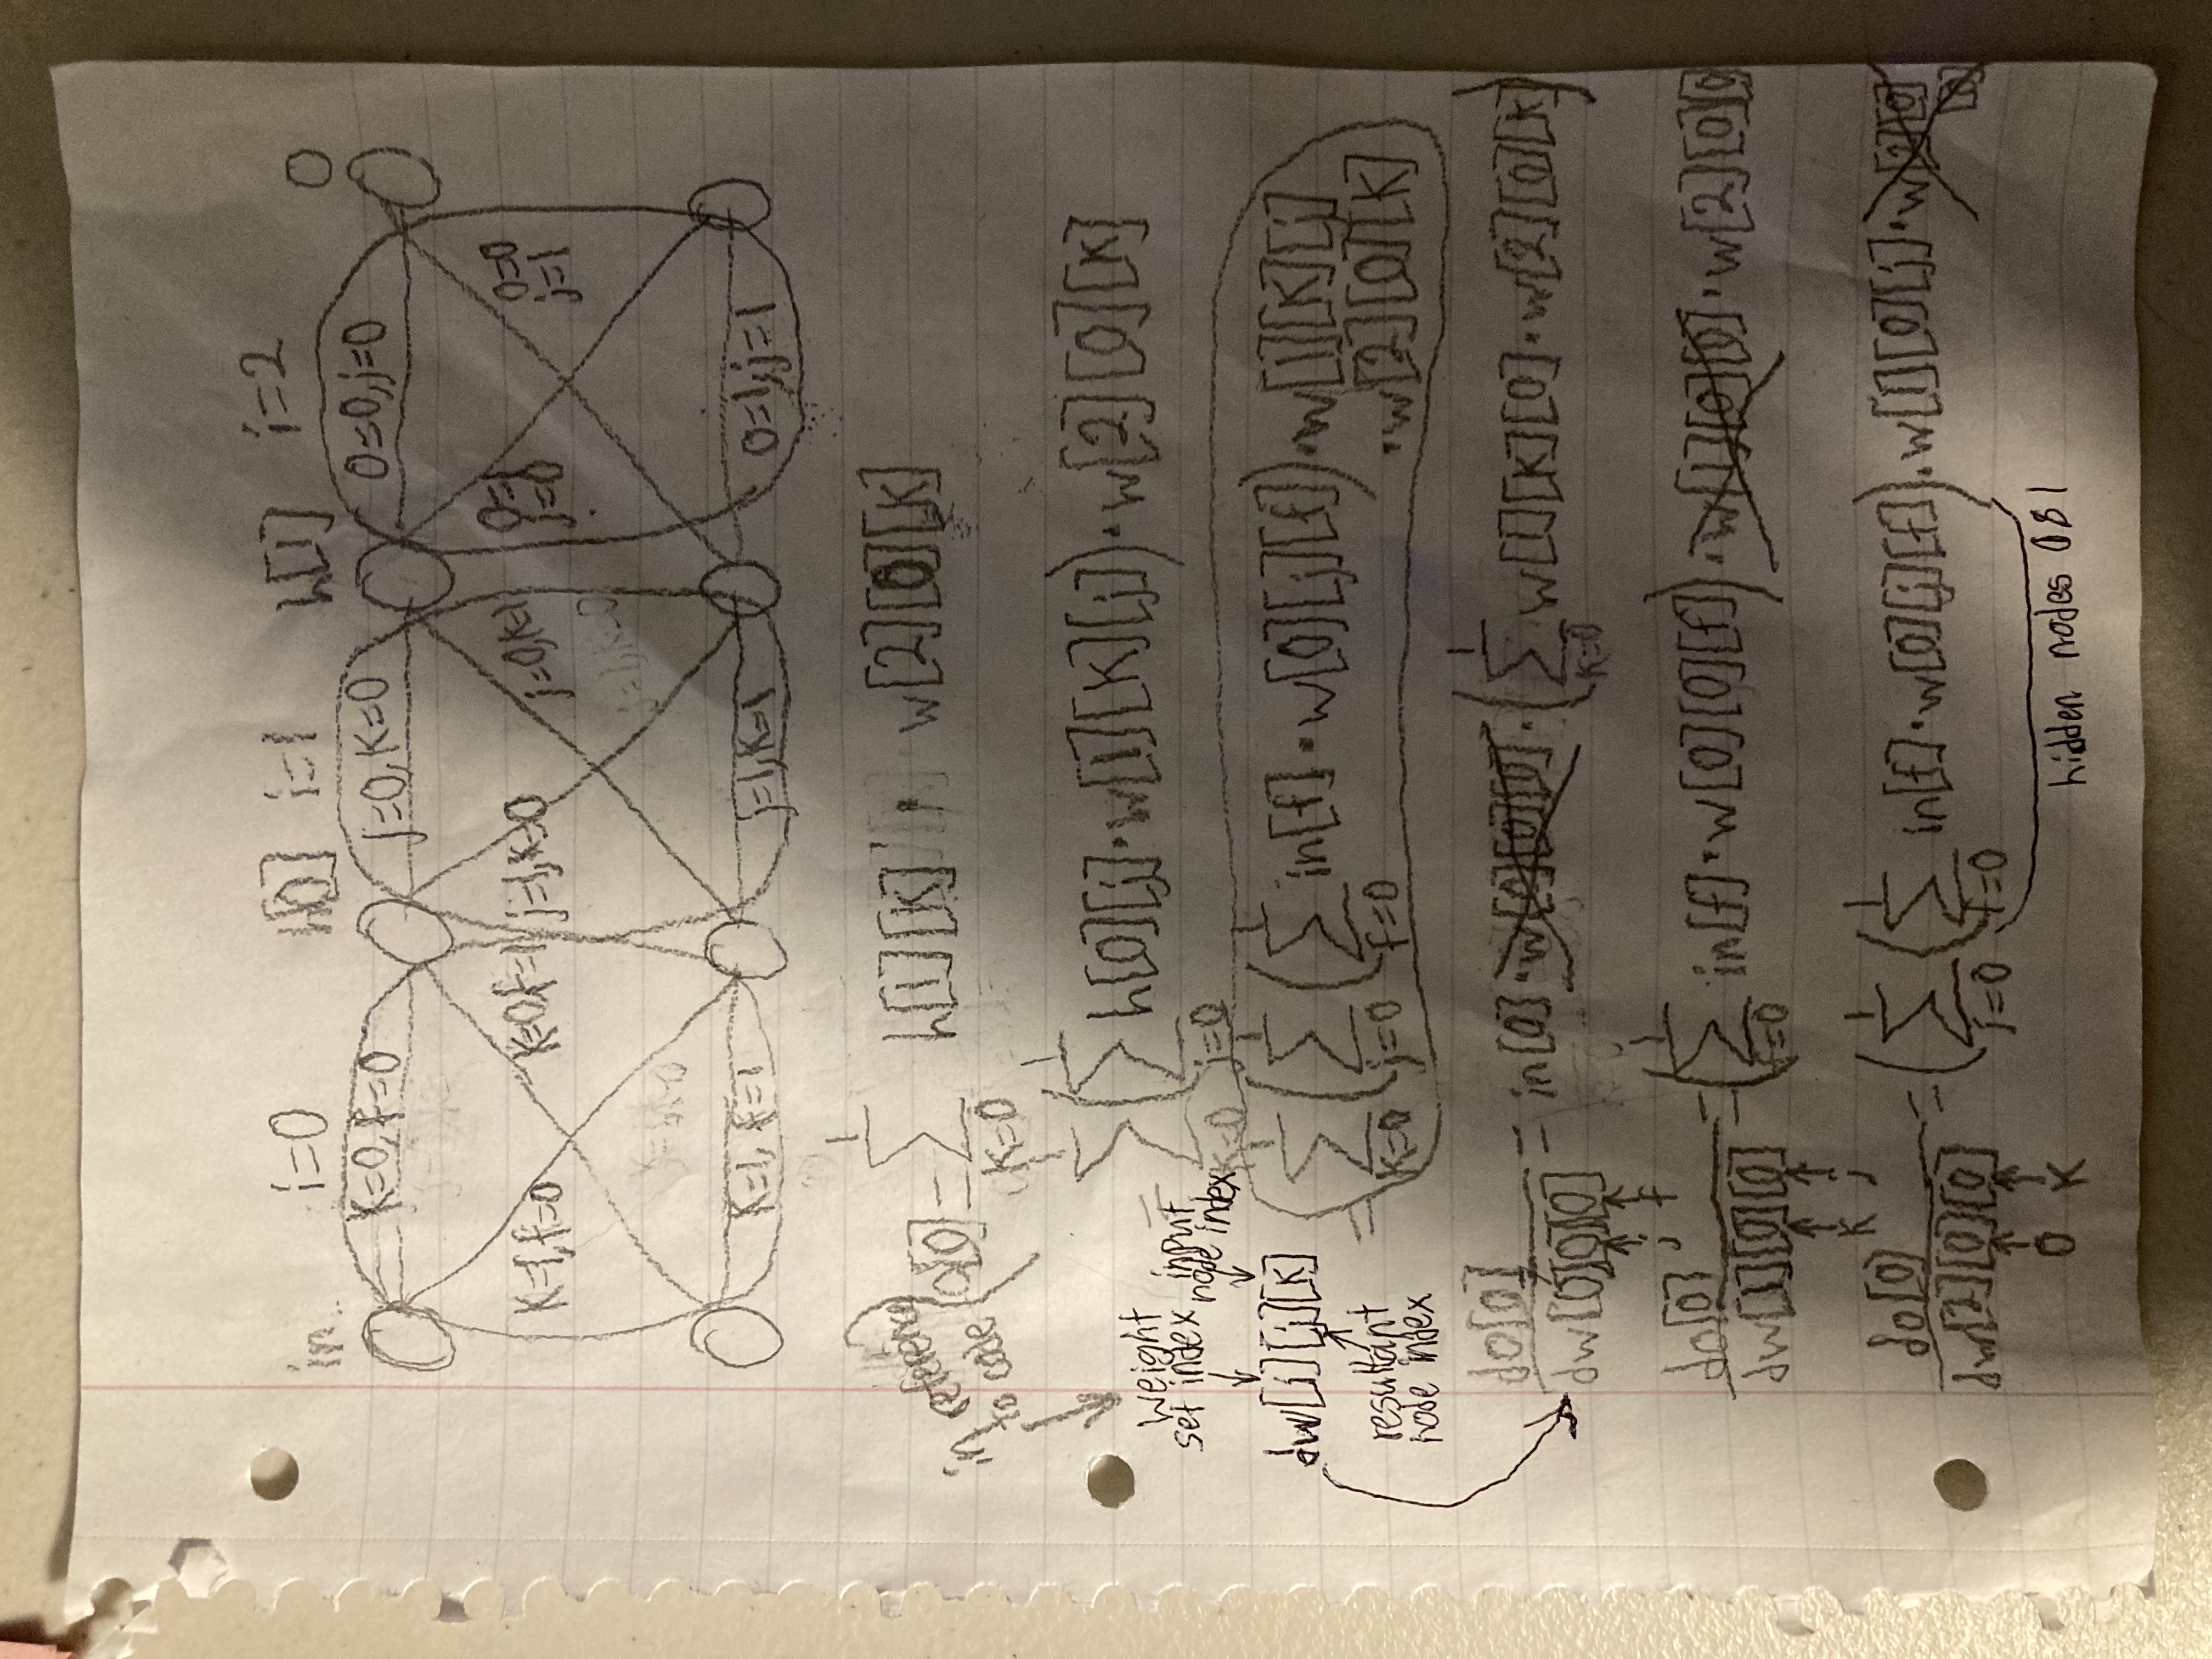 in i=0 h[0] i=1 h[1] i=2 O
K=0, f=0 j=0, K=0 O=0, j=0
K=1, f=0 K=0, f=1 j=1, K=0 j=0, K=1 O=1 j=0 O=0 j=1
j=1, K=0
K=1, f=1 j=1, K=1 O=1, j=1
in reference to code
O[0] = 1 ∑ K=0 h[1][K] · w[2][0][K]
= 1 ∑ K=0 ( 1 ∑ j=0 h[0][j] · w[1][K][j] ) · w[2][0][K]
weight set index
input node index
dw[i][j][K]
resultant node index
= 1 ∑ K=0 ( 1 ∑ j=0 ( 1 ∑ f=0 in[f] · w[0][j][f] ) · w[1][K][j]
· w[2][0][K]
do[0] / dw[0][0][0] = in[0] · w[0][0][0] · ( 1 ∑ K=0 w[1][K][0] · w[2][0][K] )
j f
do[0] / dw[1][0][0] = ( 1 ∑ f=0 in[f] · w[0][0][f] ) · w[1][0][0] · w[2][0][0]
K j
do[0] / dw[2][0][0] = ( 1 ∑ j=0 ( 1 ∑ f=0 in[f] · w[0][j][f] ) · w[1][0][j] · w[2][0][0]
O K
hidden nodes 0&1